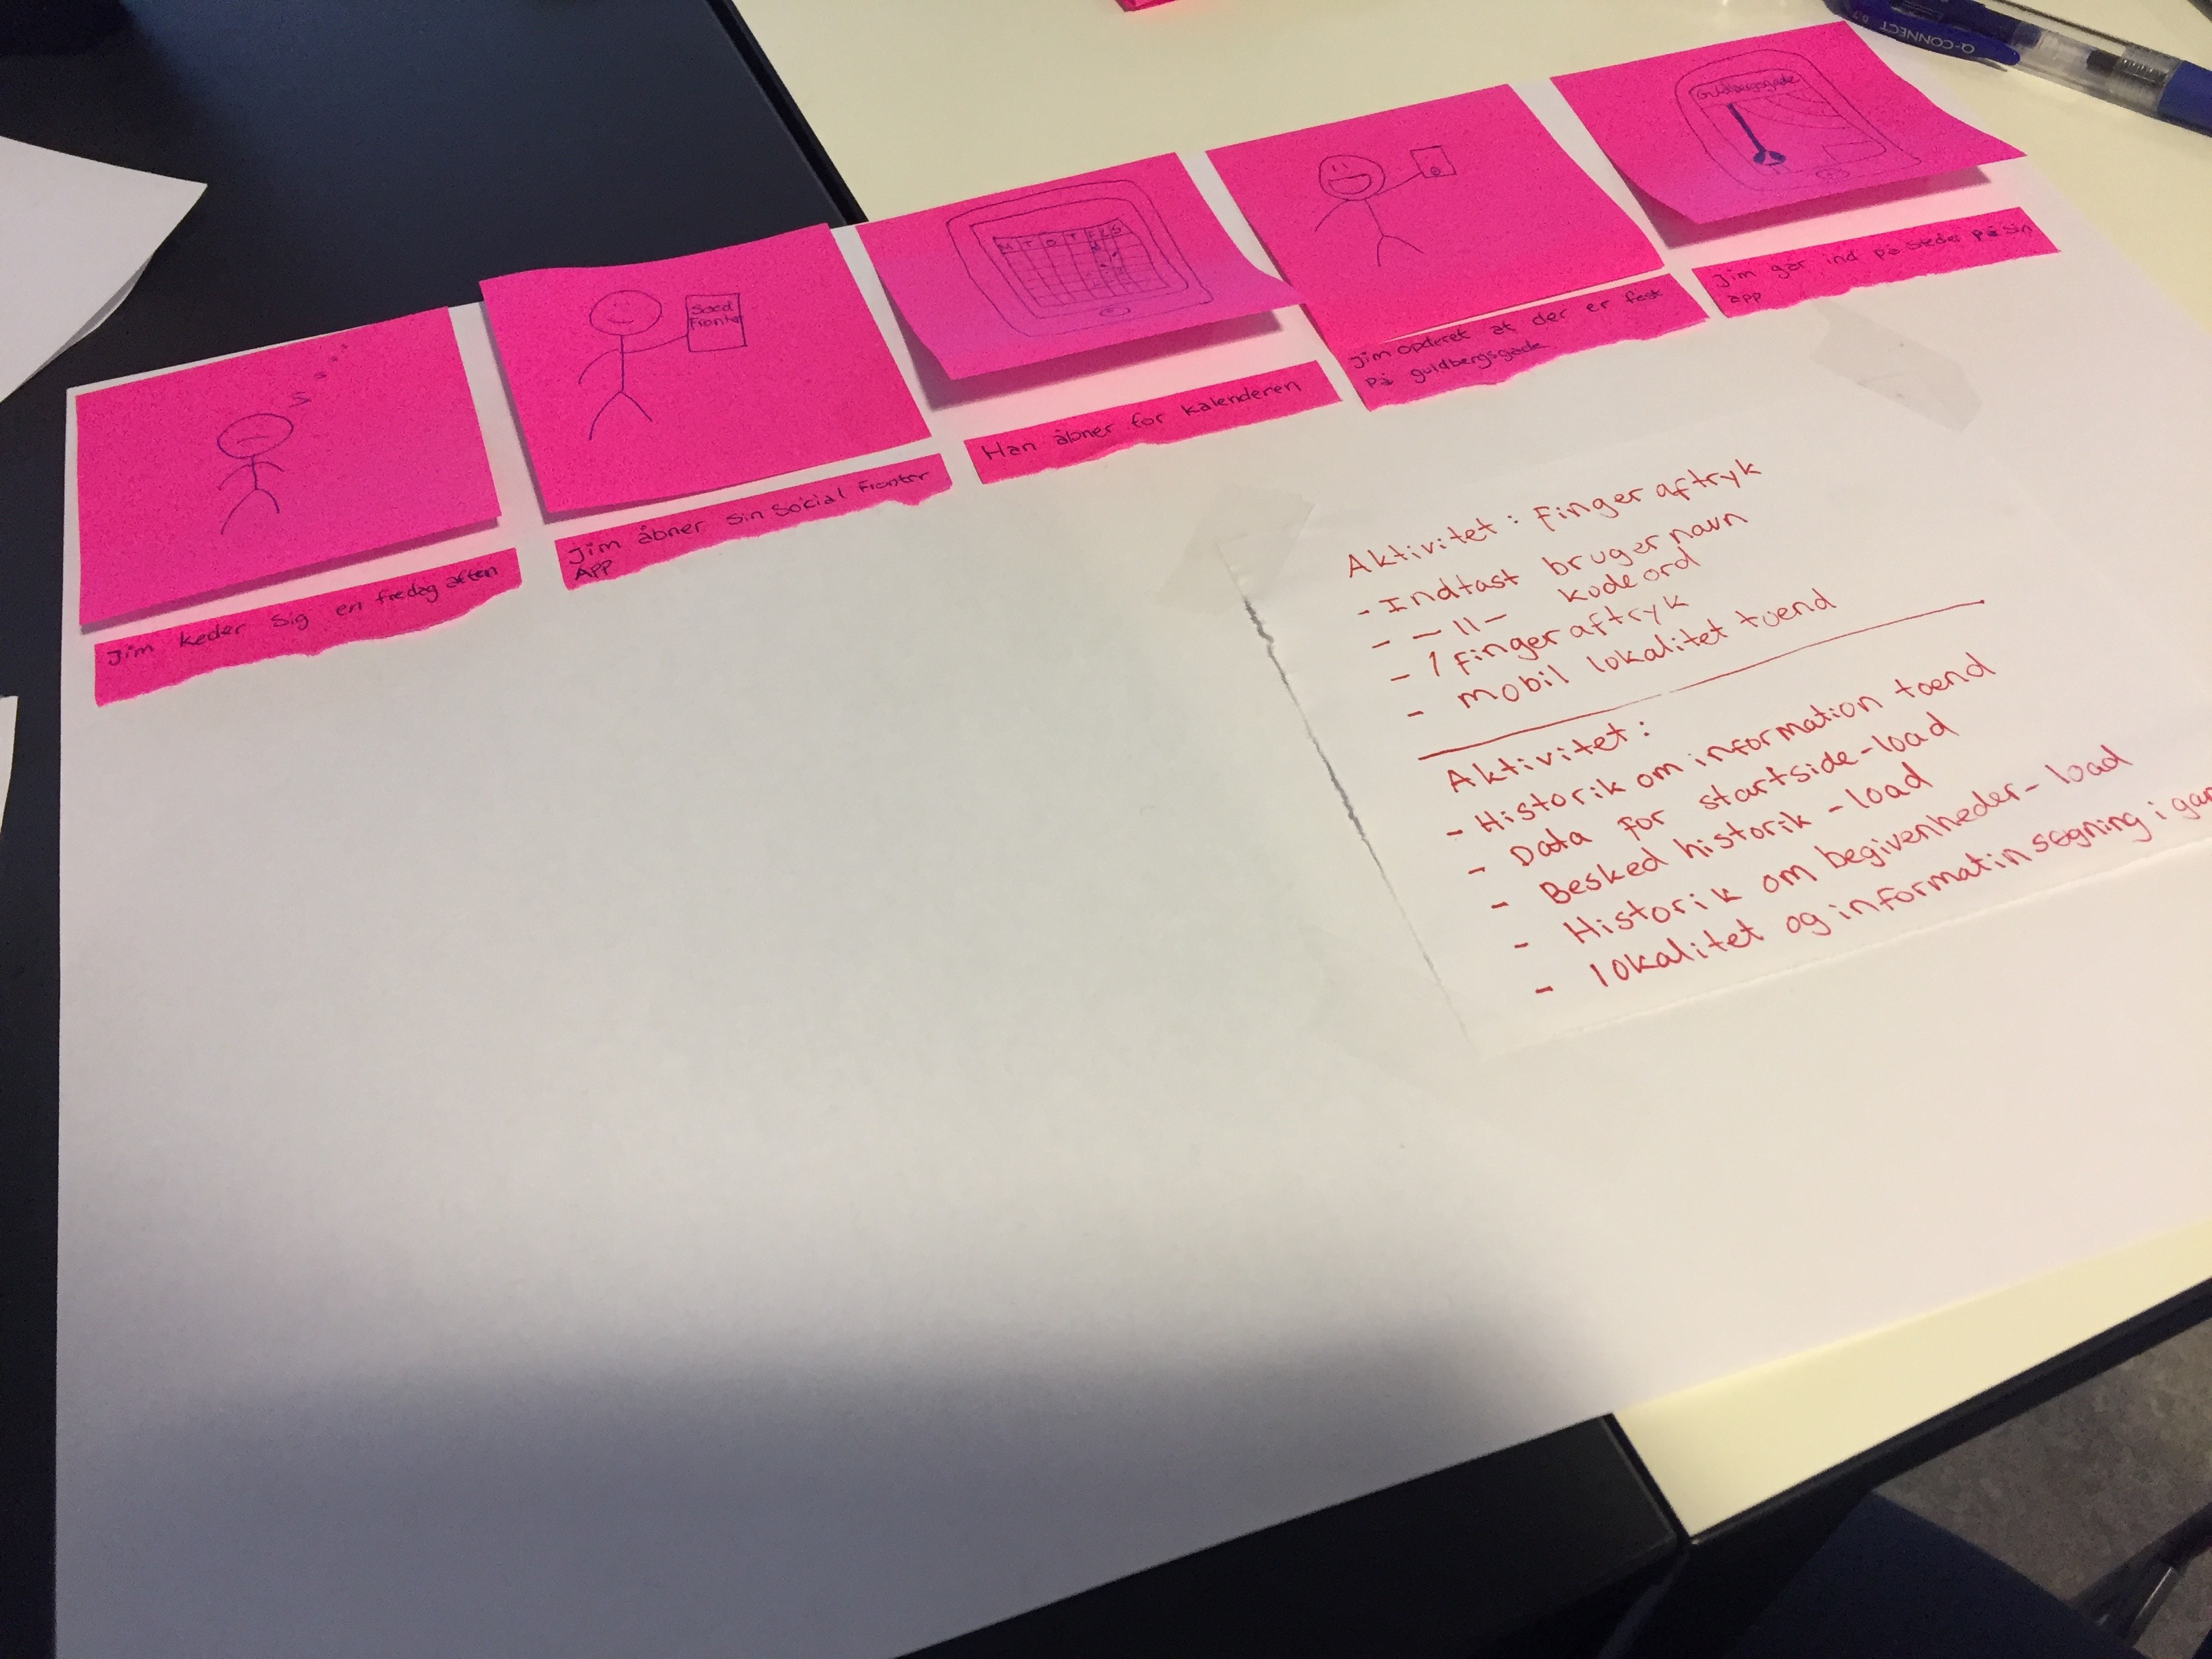 Jim keder sig en fredag aften
Social
Fronter
Jim åbner sin Social Fronter
APP
M T O T F L S
Han åbner for kalenderen
Jim opderet at der er fest
på guldbergsgade
Guldbergsgade
Jim går ind på steder på sin
app
Aktivitet: Fingeraftryk
- Indtast brugernavn
- -11- kodeord
- 1 fingeraftryk
- mobil lokalitet tænd
Aktivitet:
- Historik om information tænd
- Data for startside-load
- Besked historik -load
- Historik om begivenheder-load
- lokalitet og informatin søgning i gan
Q-CONNECT 0.7